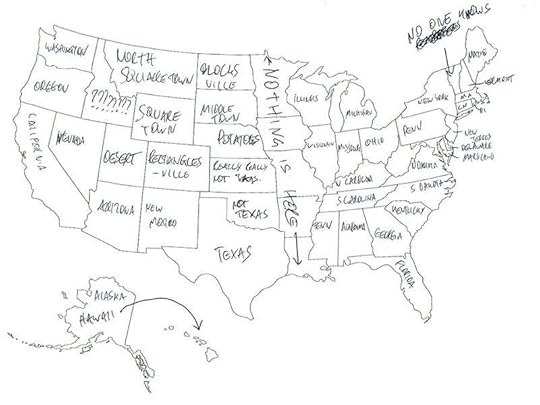 NO ONE KNOWS
WASHINGTON
OREGON
CALIFORNIA
NEVADA
??????
NORTH
SQUARETOWN
SQUARE
TOWN
DESERT
RECTANGLES
-VILLE
ARIZONA
NEW
MEXICO
BLOCKS
VILLE
MIDDLE
TOWN
POTATOES
REALLY REALLY
NOT TEXAS.
NOT
TEXAS
TEXAS
NOTHING IS HERE
ILLINOIS
WISCONSIN
MICHIGAN
MISSOURI
OHIO
PENN
NEW YORK
MAINE
VERMONT
MA
CN
RI
NEW
JERSEY
DELAWARE
MARYLAND
N CAROLINA
S CAROLINA
S DAKOTA
KENTUCKY
TENN
ALABAMA
GEORGIA
FLORIDA
ALASKA
HAWAII